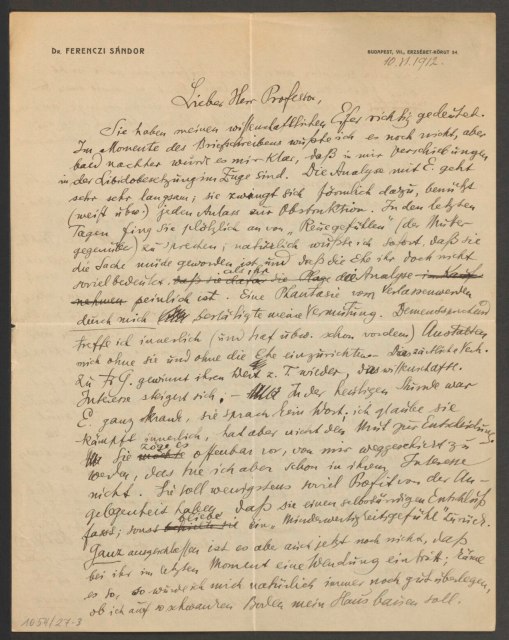 Dr. FERENCZI SÁNDOR
BUDAPEST, VII., ERZSÉBET-KÖRÚT 54.
1912.
Lieber Herr Professor,
Sie haben meinen wissenschaftlichen Eifer richtig gedeutet.
Im Momente des Briefschreibens wußte ich es noch nicht, aber
bald nachher wurde es mir klar, daß in mir Verschiebungen
in der Libidobesetzung im Zuge sind. Die Analyse mit E. geht
sehr sehr langsam; sie zwingt sich förmlich dazu, benützt
(meist ubw.) jeden Anlass zur Obstruktion. In den letzten
Tagen fing sie plötzlich an von „Reuegefühlen" (der Mutter
gegenüber) zu sprechen; natürlich wußte ich sofort, daß sie
die Sache müde geworden ist und daß die Ehe ihr doch nicht
soviel bedeutet, als ihr die Analyse
peinlich ist. Eine Phantasie vom Verlassenwerden
durch mich bestätigte meine Vermutung. Dementsprechend
treffe ich innerlich (und traf ubw. schon vordem) Anstalten
mich ohne sie und ohne die Ehe einzurichten. Das
zu Fr G. gewinnt ihren Wert z. T. wieder, das wissenschaftl.
Interesse steigert sich; – In der heutigen Stunde war
E. ganz krank, sie sprach kein Wort. ich glaube sie
kämpft innerlich, hat aber nicht den Mut zur Entscheidung.
Sie zöge es offenbar vor, von mir weggeschickt zu
werden, das tue ich aber schon in ihrem Interesse
nicht. Sie soll wenigstens soviel Profit von der An-
gelegenheit haben, daß sie einen selbständigen Entschluß
fasst; sonst bliebe ein „Minderwertigkeitsgefühl" zurück.
Ganz ausgeschlossen ist es aber auch jetzt noch nicht, daß
bei ihr im letzten Moment eine Wendung eintritt; käme
es so, so würde ich mich natürlich immer noch gut überlegen,
ob ich auf so schwanken Boden mein Haus bauen soll.
1054/27-3